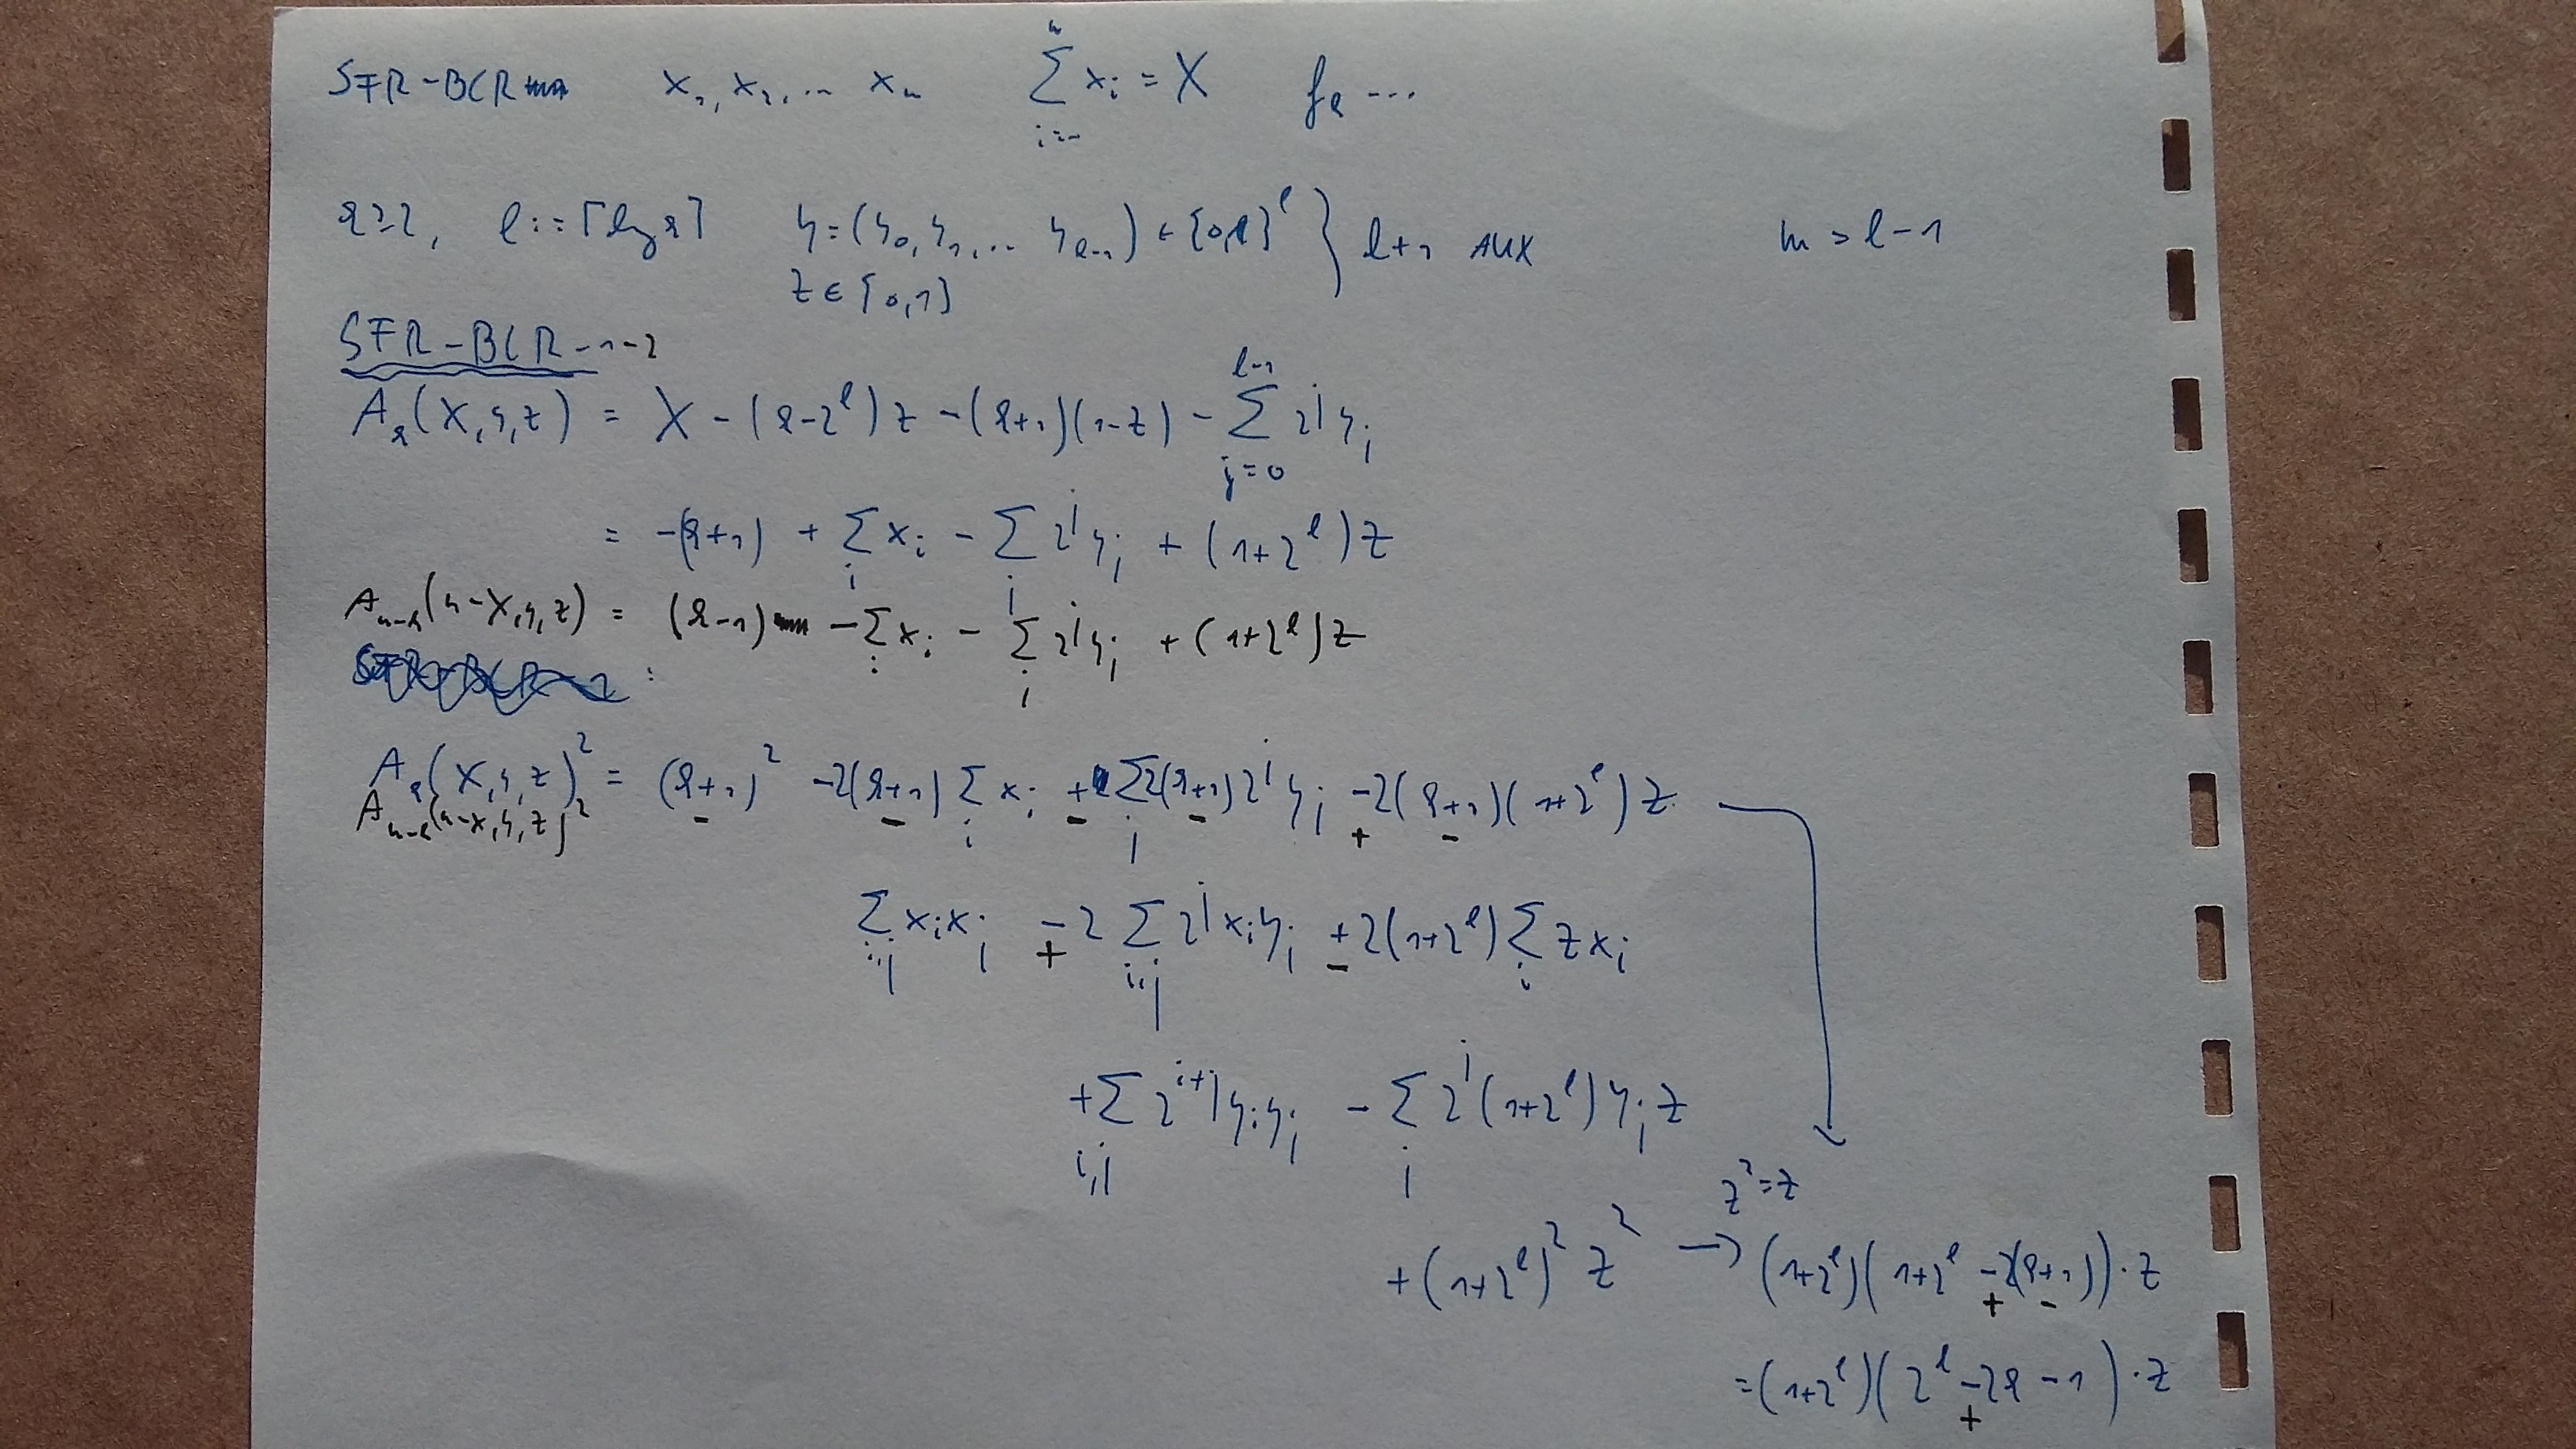 SFR-BCR x₁, x₂, ... xₙ ∑_{i=1}^{n} xᵢ = X f_k ...
k≥2, l := ⌈log k⌉ y = (y₀, y₁, ... y_{l-1}) ∈ {0,1}^l } l+1 AUX m = l-1
z ∈ {0,1}
SFR-BCR-1-2
A_k(X,y,z) = X - (k-2^l)z - (k+1)(1-z) - ∑_{j=0}^{l-1} 2^j y_j
= -(k+1) + ∑_i x_i - ∑_j 2^j y_j + (1+2^l)z
A_{n-k}(n-X,y,z) = (k-1) - ∑_i x_i - ∑_j 2^j y_j + (1+2^l)z
:
A_k(X,y,z)² = (k+1)² -2(k+1) ∑_i x_i + ∑_j 2(k+1)2^j y_j -2(k+1)(1+2^l)z
A_{n-k}(n-X,y,z)² - - - - + -
∑_{i,j} x_i x_j - 2 ∑_{i,j} 2^j x_i y_j + 2(1+2^l) ∑_i z x_i
+ -
+ ∑_{i,j} 2^{i+j} y_i y_j - ∑_j 2^j (1+2^l) y_j z
z² = z
+ (1+2^l)² z² → (1+2^l)(1+2^l -2(k+1))·z
+ -
= (1+2^l)(2^l -2k -1)·z
+